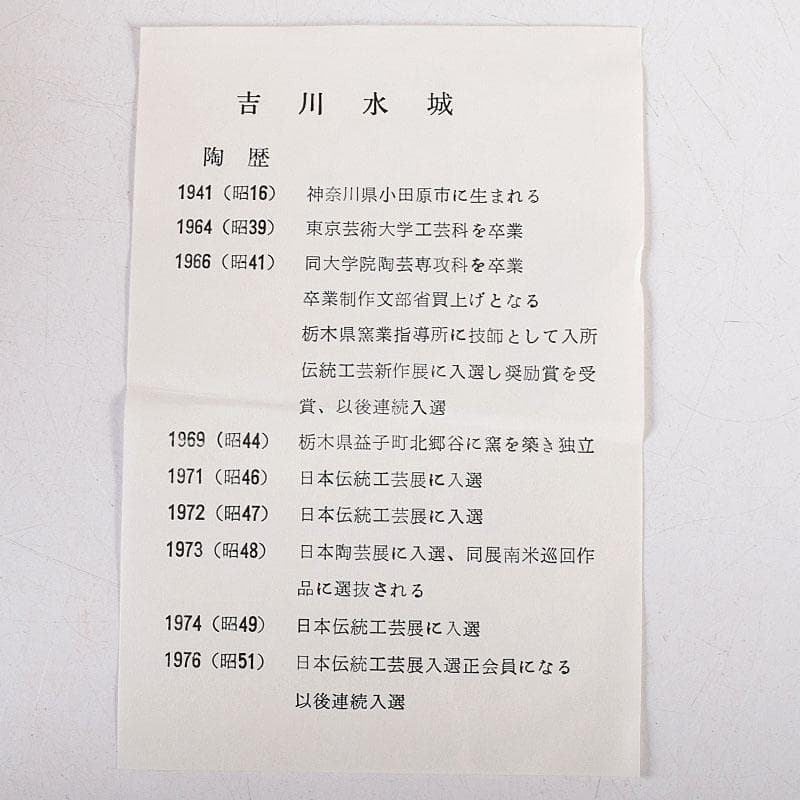 吉川水城
陶歴
1941（昭16） 神奈川県小田原市に生まれる
1964（昭39） 東京芸術大学工芸科を卒業
1966（昭41） 同大学院陶芸専攻科を卒業
卒業制作文部省買上げとなる
栃木県窯業指導所に技師として入所
伝統工芸新作展に入選し奨励賞を受
賞、以後連続入選
1969（昭44） 栃木県益子町北郷谷に窯を築き独立
1971（昭46） 日本伝統工芸展に入選
1972（昭47） 日本伝統工芸展に入選
1973（昭48） 日本陶芸展に入選、同展南米巡回作
品に選抜される
1974（昭49） 日本伝統工芸展に入選
1976（昭51） 日本伝統工芸展入選正会員になる
以後連続入選